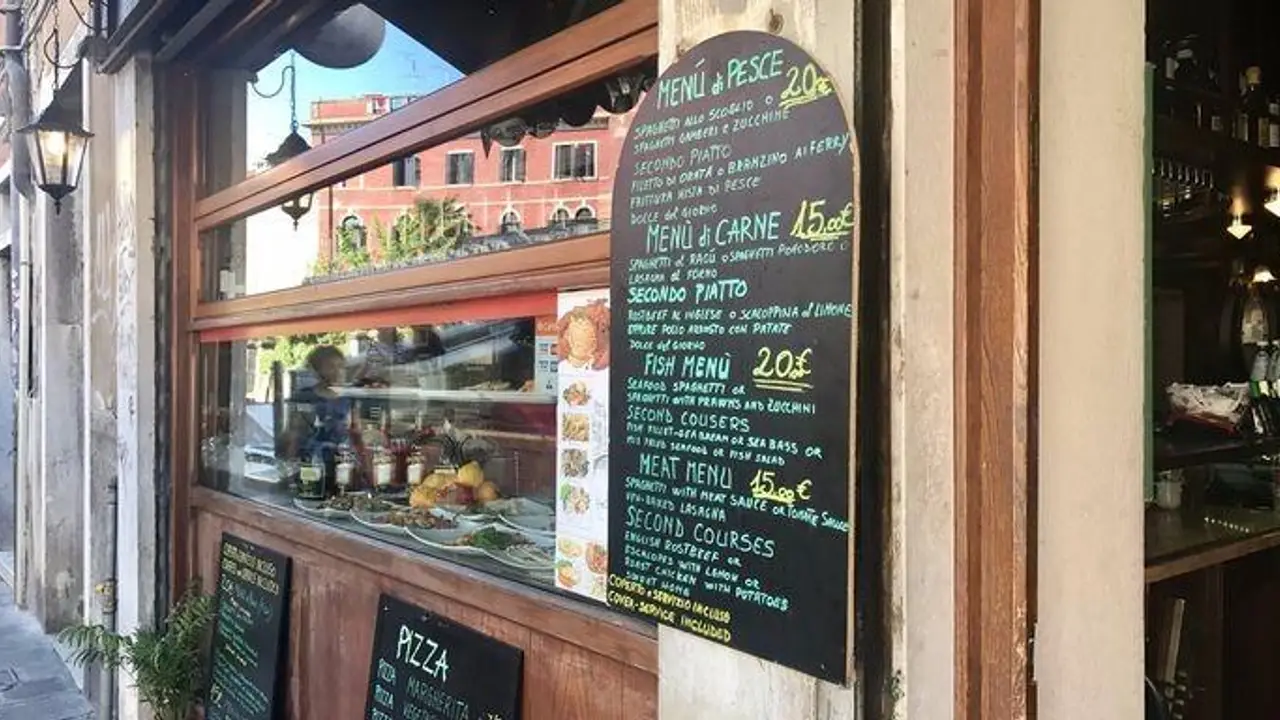 MENÚ di PESCE 20€
SPAGHETTI ALLO SCOGLIO O
SPAGHETTI GAMBERI E ZUCCHINE
SECONDO PIATTO
FILETTO DI ORATA O BRANZINO AI FERRY
FRITTURA MISTA DI PESCE
DOLCE del GIORNO
MENÙ di CARNE 15,00€
SPAGHETTI al RAGÙ O SPAGHETTI POMODORO O
LASAGNA al FORNO
SECONDO PIATTO
ROSTBEEF AL INGLESE O SCALOPPINA al LIMONE
POLLO ARROSTO CON PATATE
DOLCE del GIORNO
FISH MENÙ 20£
SEAFOOD SPAGHETTI OR
SPAGHETTI WITH PRAWNS AND ZUCCHINI
SECOND COUSERS
FISH FILLET-SEA BREAM OR SEA BASS OR
MIX FRIED SEAFOOD OR FISH SALAD
MEAT MENU 15,00€
SPAGHETTI WITH MEAT SAUCE OR TOMATE SAUCE
LASAGNA
SECOND COURSES
ENGLISH ROSTBEEF OR
ESCALOPES WITH LEMON OR
ROAST CHICKEN WITH POTATOES
COPERTO e SERVIZIO INCLUSO
COVER-SERVICE INCLUDED
PIZZA
PIZZA MARGHERITA
PIZZA